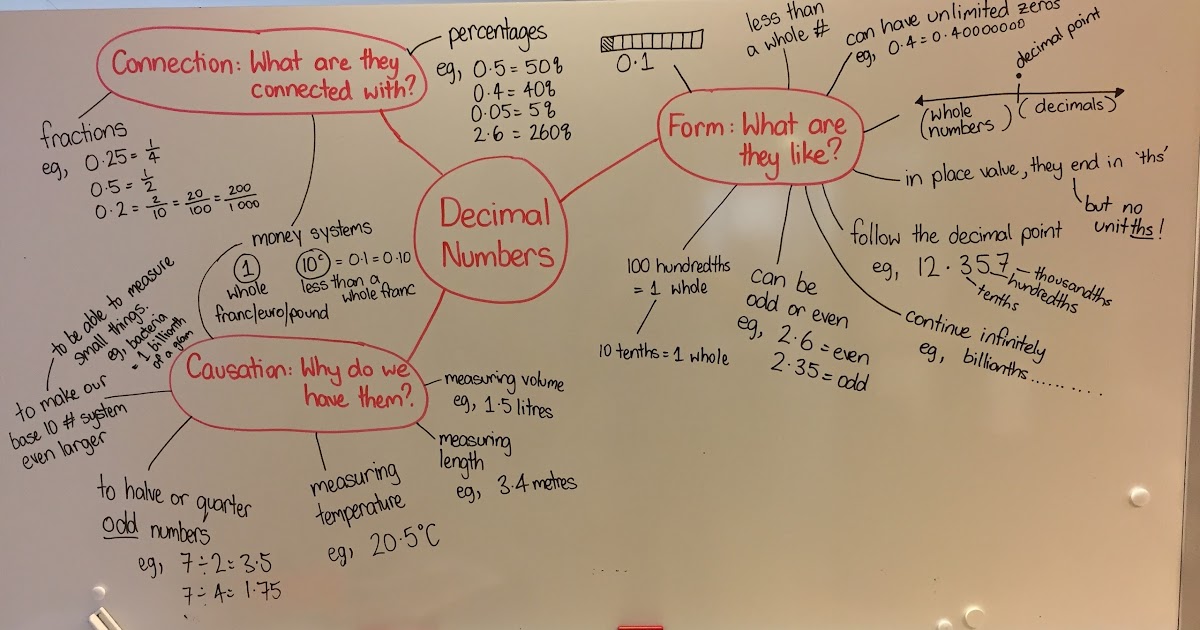 Decimal
Numbers
Connection: What are they
connected with?
percentages
eg, 0.5 = 50%
0.4 = 40%
0.05 = 5%
2.6 = 260%
fractions
eg, 0.25 = 1/4
0.5 = 1/2
0.2 = 2/10 = 20/100 = 200/1000
money systems
1 10c = 0.1 = 0.10
whole less than a
whole franc
franc/euro/pound
Form: What are
they like?
0.1
less than
a whole #
can have unlimited zeros
eg, 0.4 = 0.40000000
decimal point
(whole
numbers) (decimals)
in place value, they end in 'ths'
but no
unitths!
follow the decimal point
eg, 12.357 - thousandths
hundredths
tenths
continue infinitely
eg, billionths..........
can be
odd or even
eg, 2.6 = even
2.35 = odd
100 hundredths
= 1 whole
10 tenths = 1 whole
Causation: Why do we
have them?
measuring volume
eg, 1.5 litres
measuring
length
eg, 3.4 metres
measuring
temperature
eg, 20.5°C
to halve or quarter
odd numbers
eg, 7÷2= 3.5
7÷4= 1.75
to make our
base 10 # system
even larger
to be able to measure
small things.
eg, bacteria
= 1 billionth
of a gram